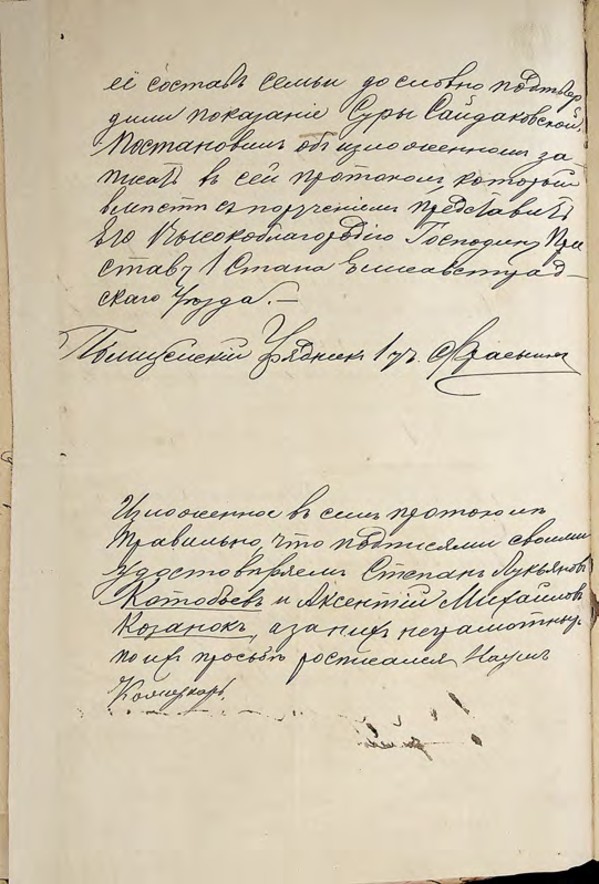 её составъ семьи дословно подтвер
дили показаніе Суры Сайдаковской.
Постановилъ объ изложенномъ за-
писать въ сей протоколъ, который
вмѣстѣ съ порученіемъ представить
Его Высокоблагородію Господину При
ставу 1 Стана Елисаветград-
скаго уѣзда. —
Полицейскій Урядникъ 1 уч.
Изложенное въ семъ протоколѣ
правильно, что подписями своими
удостовѣряемъ Степанъ Лукьяновъ
Котобьевъ и Аксентій Михайловъ
Козанокъ, а за нихъ неграмотныхъ
по ихъ просьбѣ росписался Наумъ